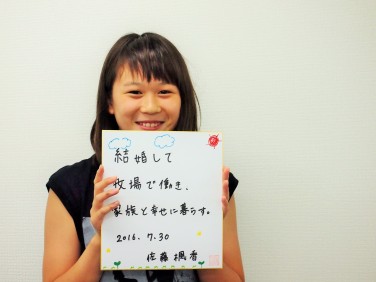 結婚して
牧場で働き、
家族と幸せに暮らす。
2016. 7.30
佐藤楓香